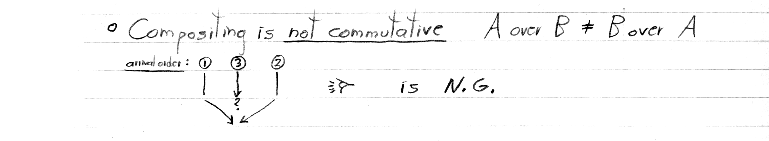 o Compositing is not commutative A over B ≠ B over A
arrival order: ① ③ ②
? is N.G.